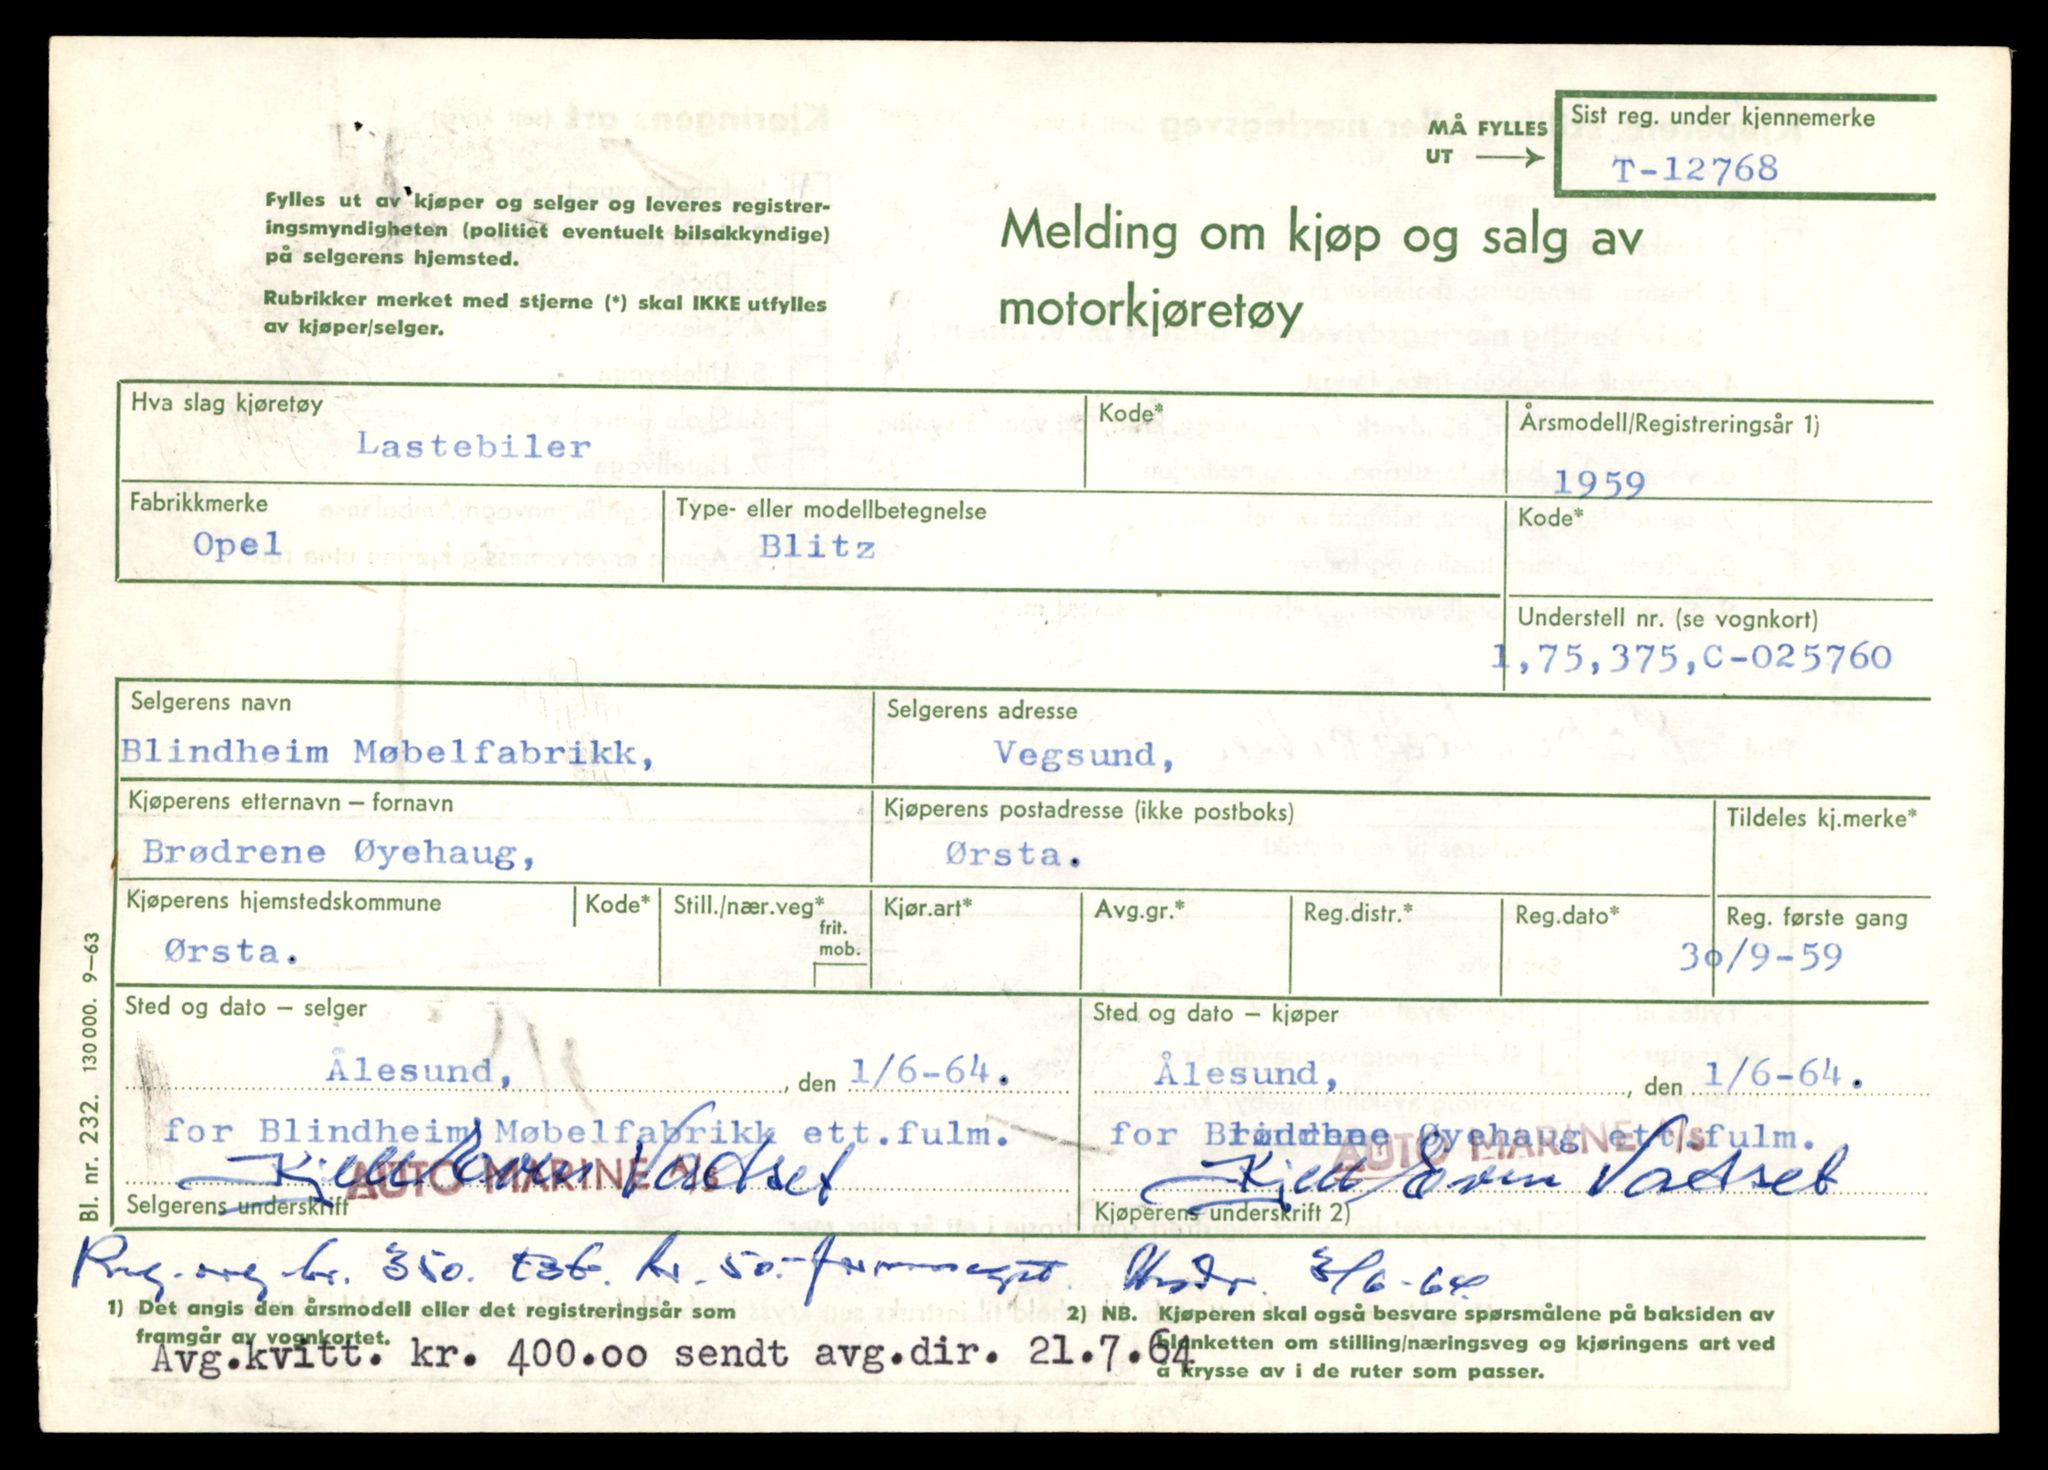 Sist reg. under kjennemerke
MÅ FYLLES
UT
T-12768
Fylles ut av kjøper og selger og leveres registrer-
ingsmyndigheten (politiet eventuelt bilsakkyndige)
på selgerens hjemsted.
Rubrikker merket med stjerne (*) skal IKKE utfylles
av kjøper/selger.
Melding om kjøp og salg av
motorkjøretøy
Hva slag kjøretøy
Kode*
Årsmodell/Registreringsår 1)
Lastebiler
1959
Fabrikkmerke
Type- eller modellbetegnelse
Kode*
Opel
Blitz
Understell nr. (se vognkort)
1,75,375,C-025760
Selgerens navn
Selgerens adresse
Blindheim Møbelfabrikk,
Vegsund,
Kjøperens etternavn – fornavn
Kjøperens postadresse (ikke postboks)
Tildeles kj.merke*
Brødrene Øyehaug,
Ørsta.
Kjøperens hjemstedskommune
Kode*
Still./nær.veg*
Kjør.art*
Avg.gr.*
Reg.distr.*
Reg.dato*
Reg. første gang
frit.
mob.
Ørsta.
30/9-59
Sted og dato – selger
Sted og dato – kjøper
Ålesund, , den 1/6-64.
Ålesund, , den 1/6-64.
for Blindheim Møbelfabrikk ett.fulm.
for Brødrene Øyehaug ett.fulm.
AUTO MARINE A/S
AUTO MARINE A/S
Kjell Even Vadset
Kjell Even Vadset
Selgerens underskrift
Kjøperens underskrift 2)
Bl. nr. 232. 130000. 9–63
Reg. avg. kr. 350. kr. 50.- 3/6-64
1) Det angis den årsmodell eller det registreringsår som
framgår av vognkortet.
Avg.kvitt. kr. 400.oo sendt avg.dir. 21.7.64
2) NB. Kjøperen skal også besvare spørsmålene på baksiden av
blanketten om stilling/næringsveg og kjøringens art ved
å krysse av i de ruter som passer.